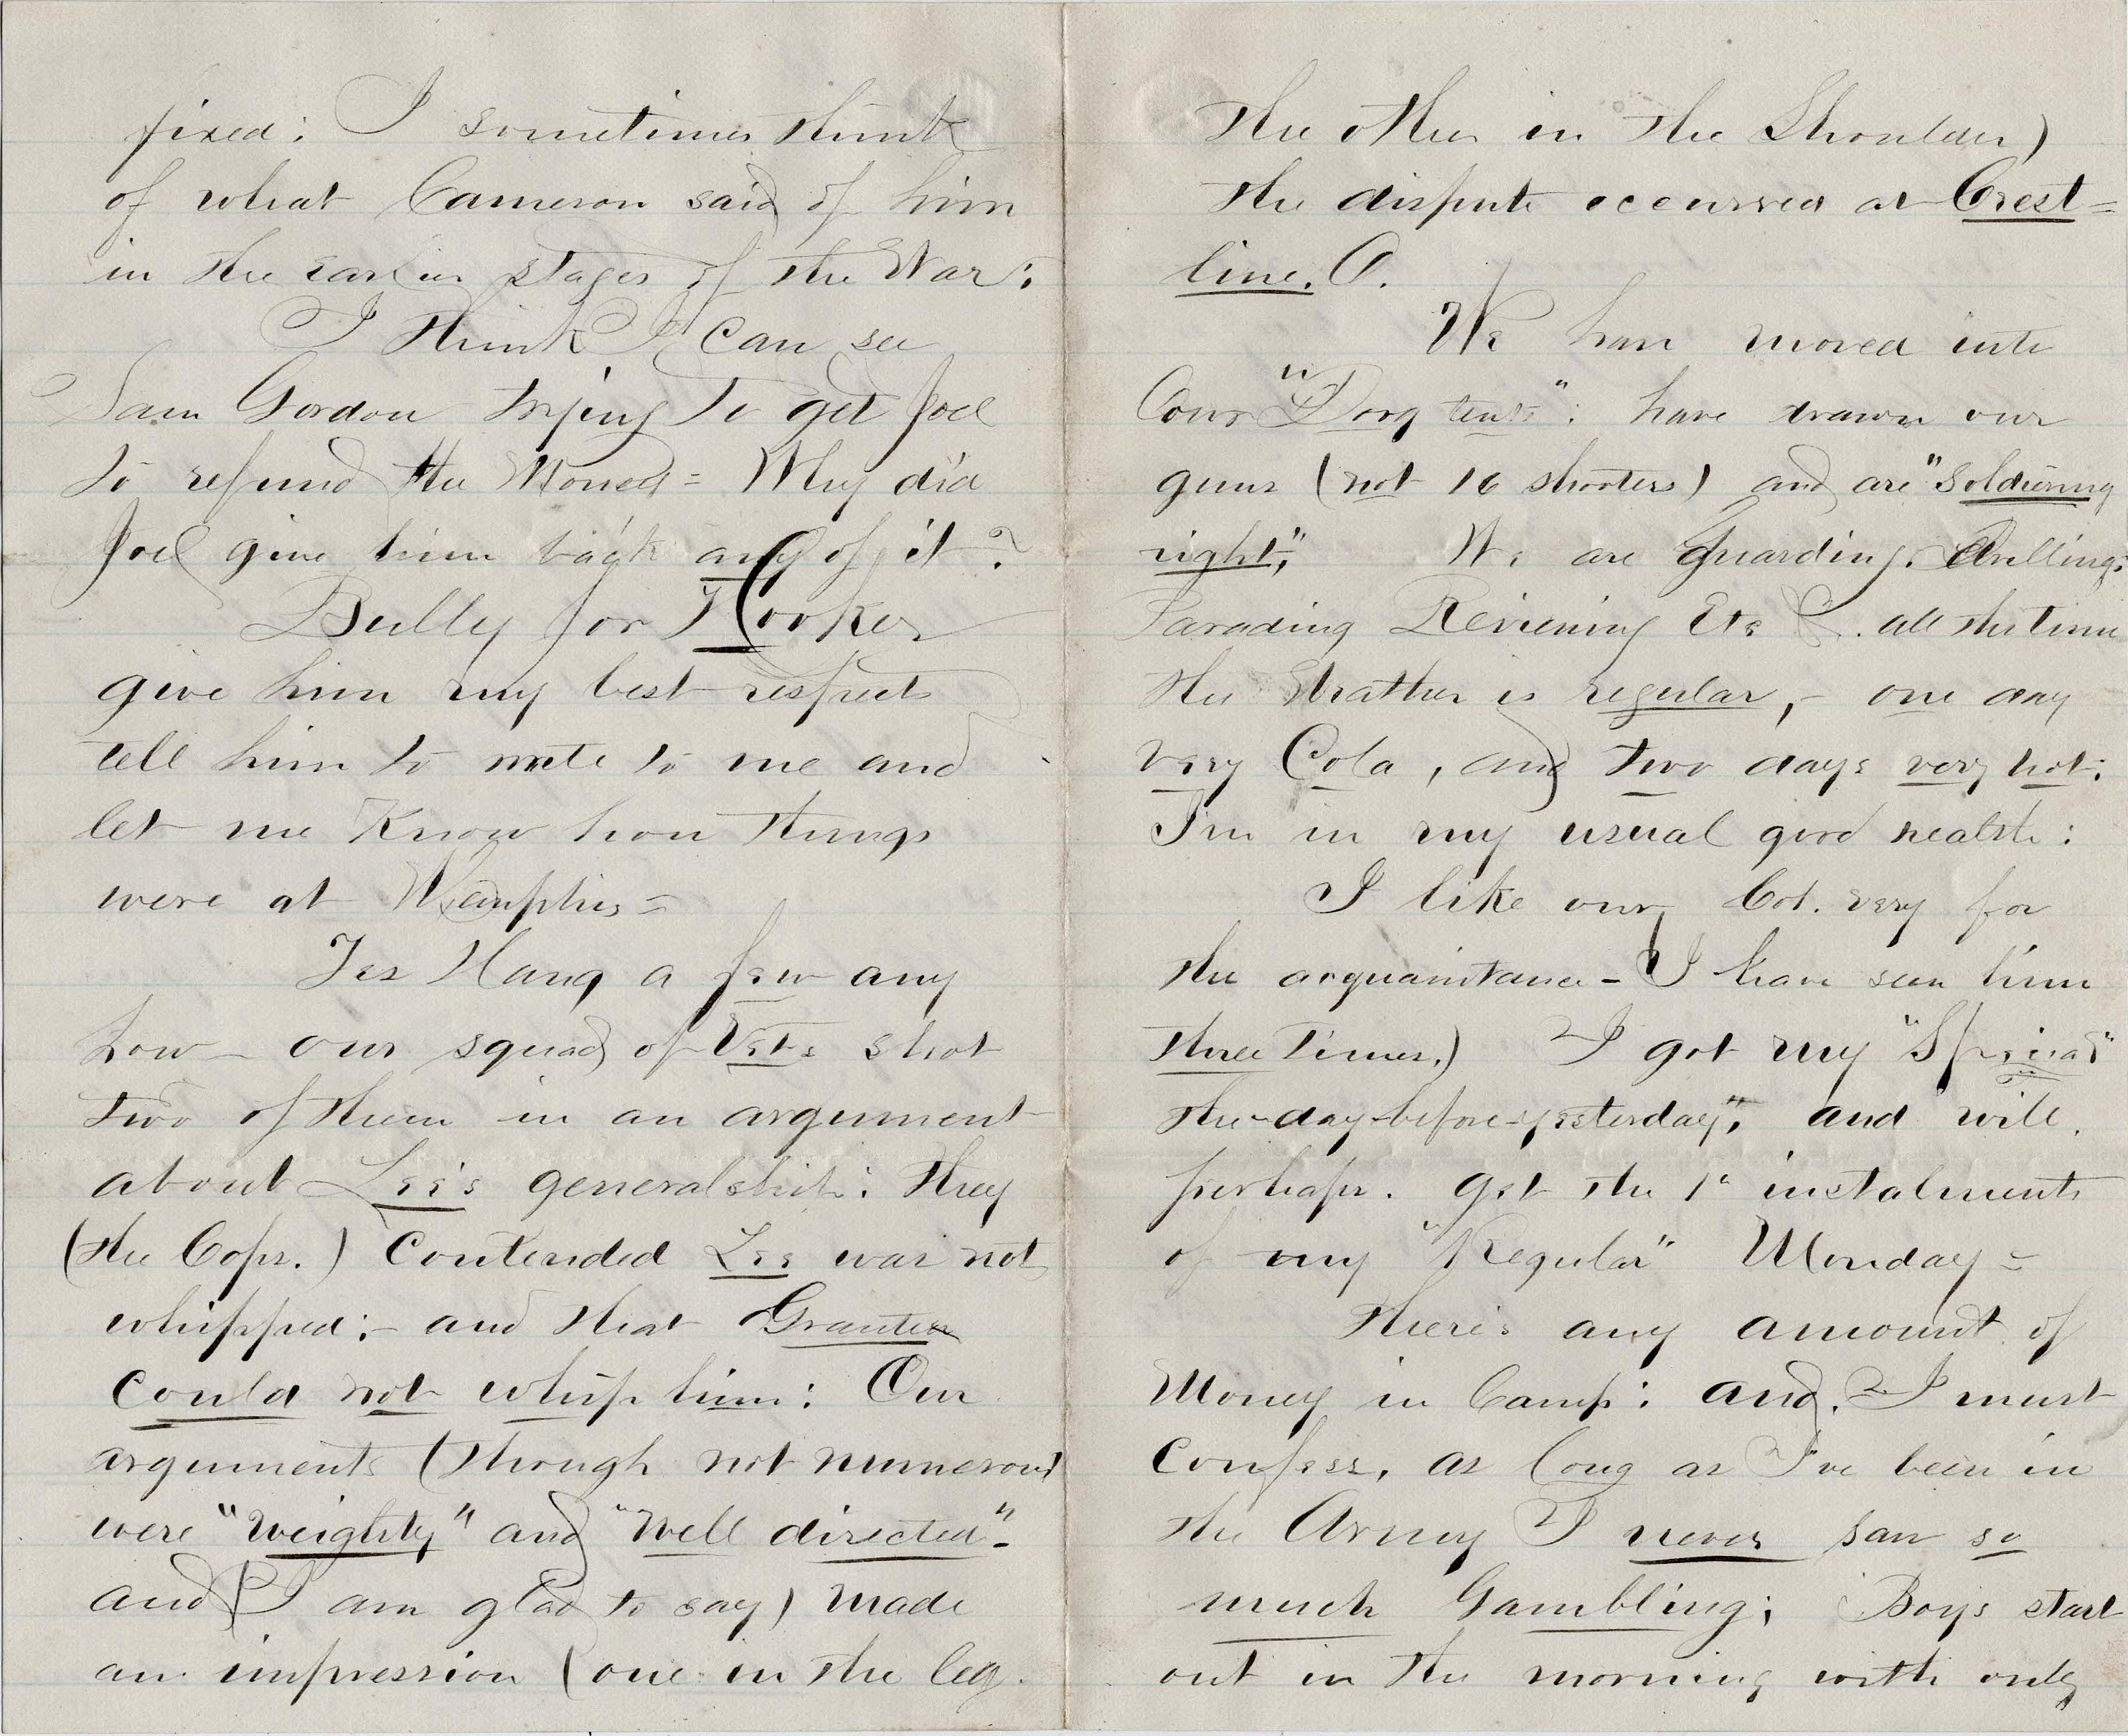 fixed: I sometimes think
of what Cameron said of him
in the earlier stages of the War:
I think I can see
Sam Gordon trying to get Joel
to refund the Money = Why did
Joel give him back any of it?
Bully for Hooker
give him my best respects
tell him to write to me and
let me Know how things
were at Memphis =
Yes Hang a few any
how - our squad of Vets shot
two of them in an argument
about Lee's generalship: they
(the Cops.) Contended Lee was not
whipped;- and that Grant
could not whip him: Our
arguments (though not numerous)
were "weighty" and "well directed"-
and (I am glad to say) made
an impression (one in the leg.
the other in the Shoulder)
the dispute occurred at Crest=
line. O.
We have moved into
our "Dorg tents": have drawn our
guns (not 16 shooters) and are "Soldiering
right," We are Guarding. Drilling:
Parading Reviewing Etc &. all the time
the Weather is regular,- one day
very Cold, and two days very hot:
I'm in my usual good health:
I like our Col. very for
the acquaintance - I have seen him
three times.) I got my "Special"
the-day-before-yesterday", and will.
perhaps. get the 1st instalment
of my "Regular" Monday =
there's any amount of
Money in Camp: and. I must
Confess, as long as I've been in
the Army I never saw so
much Gambling; Boys start
out in the morning with only